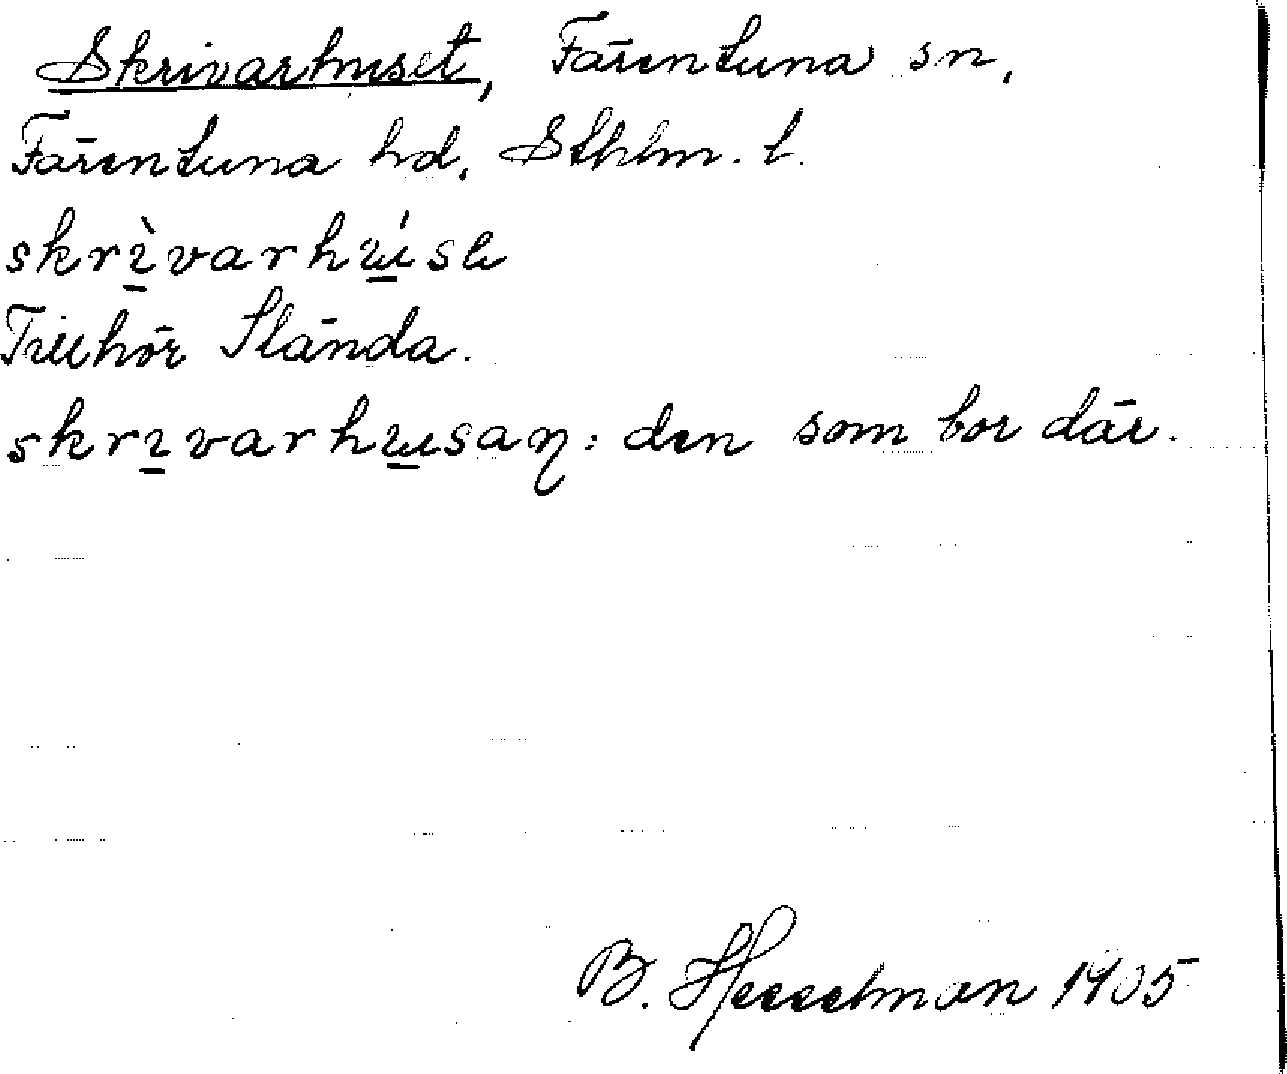 Skrivarhuset, Färentuna sn,
Färentuna hd, Sthlm. l.
skrìvarhúse
Tillhör Slända.
skrivarhusaṇ: den som bor där.
B. Hesselman 1905